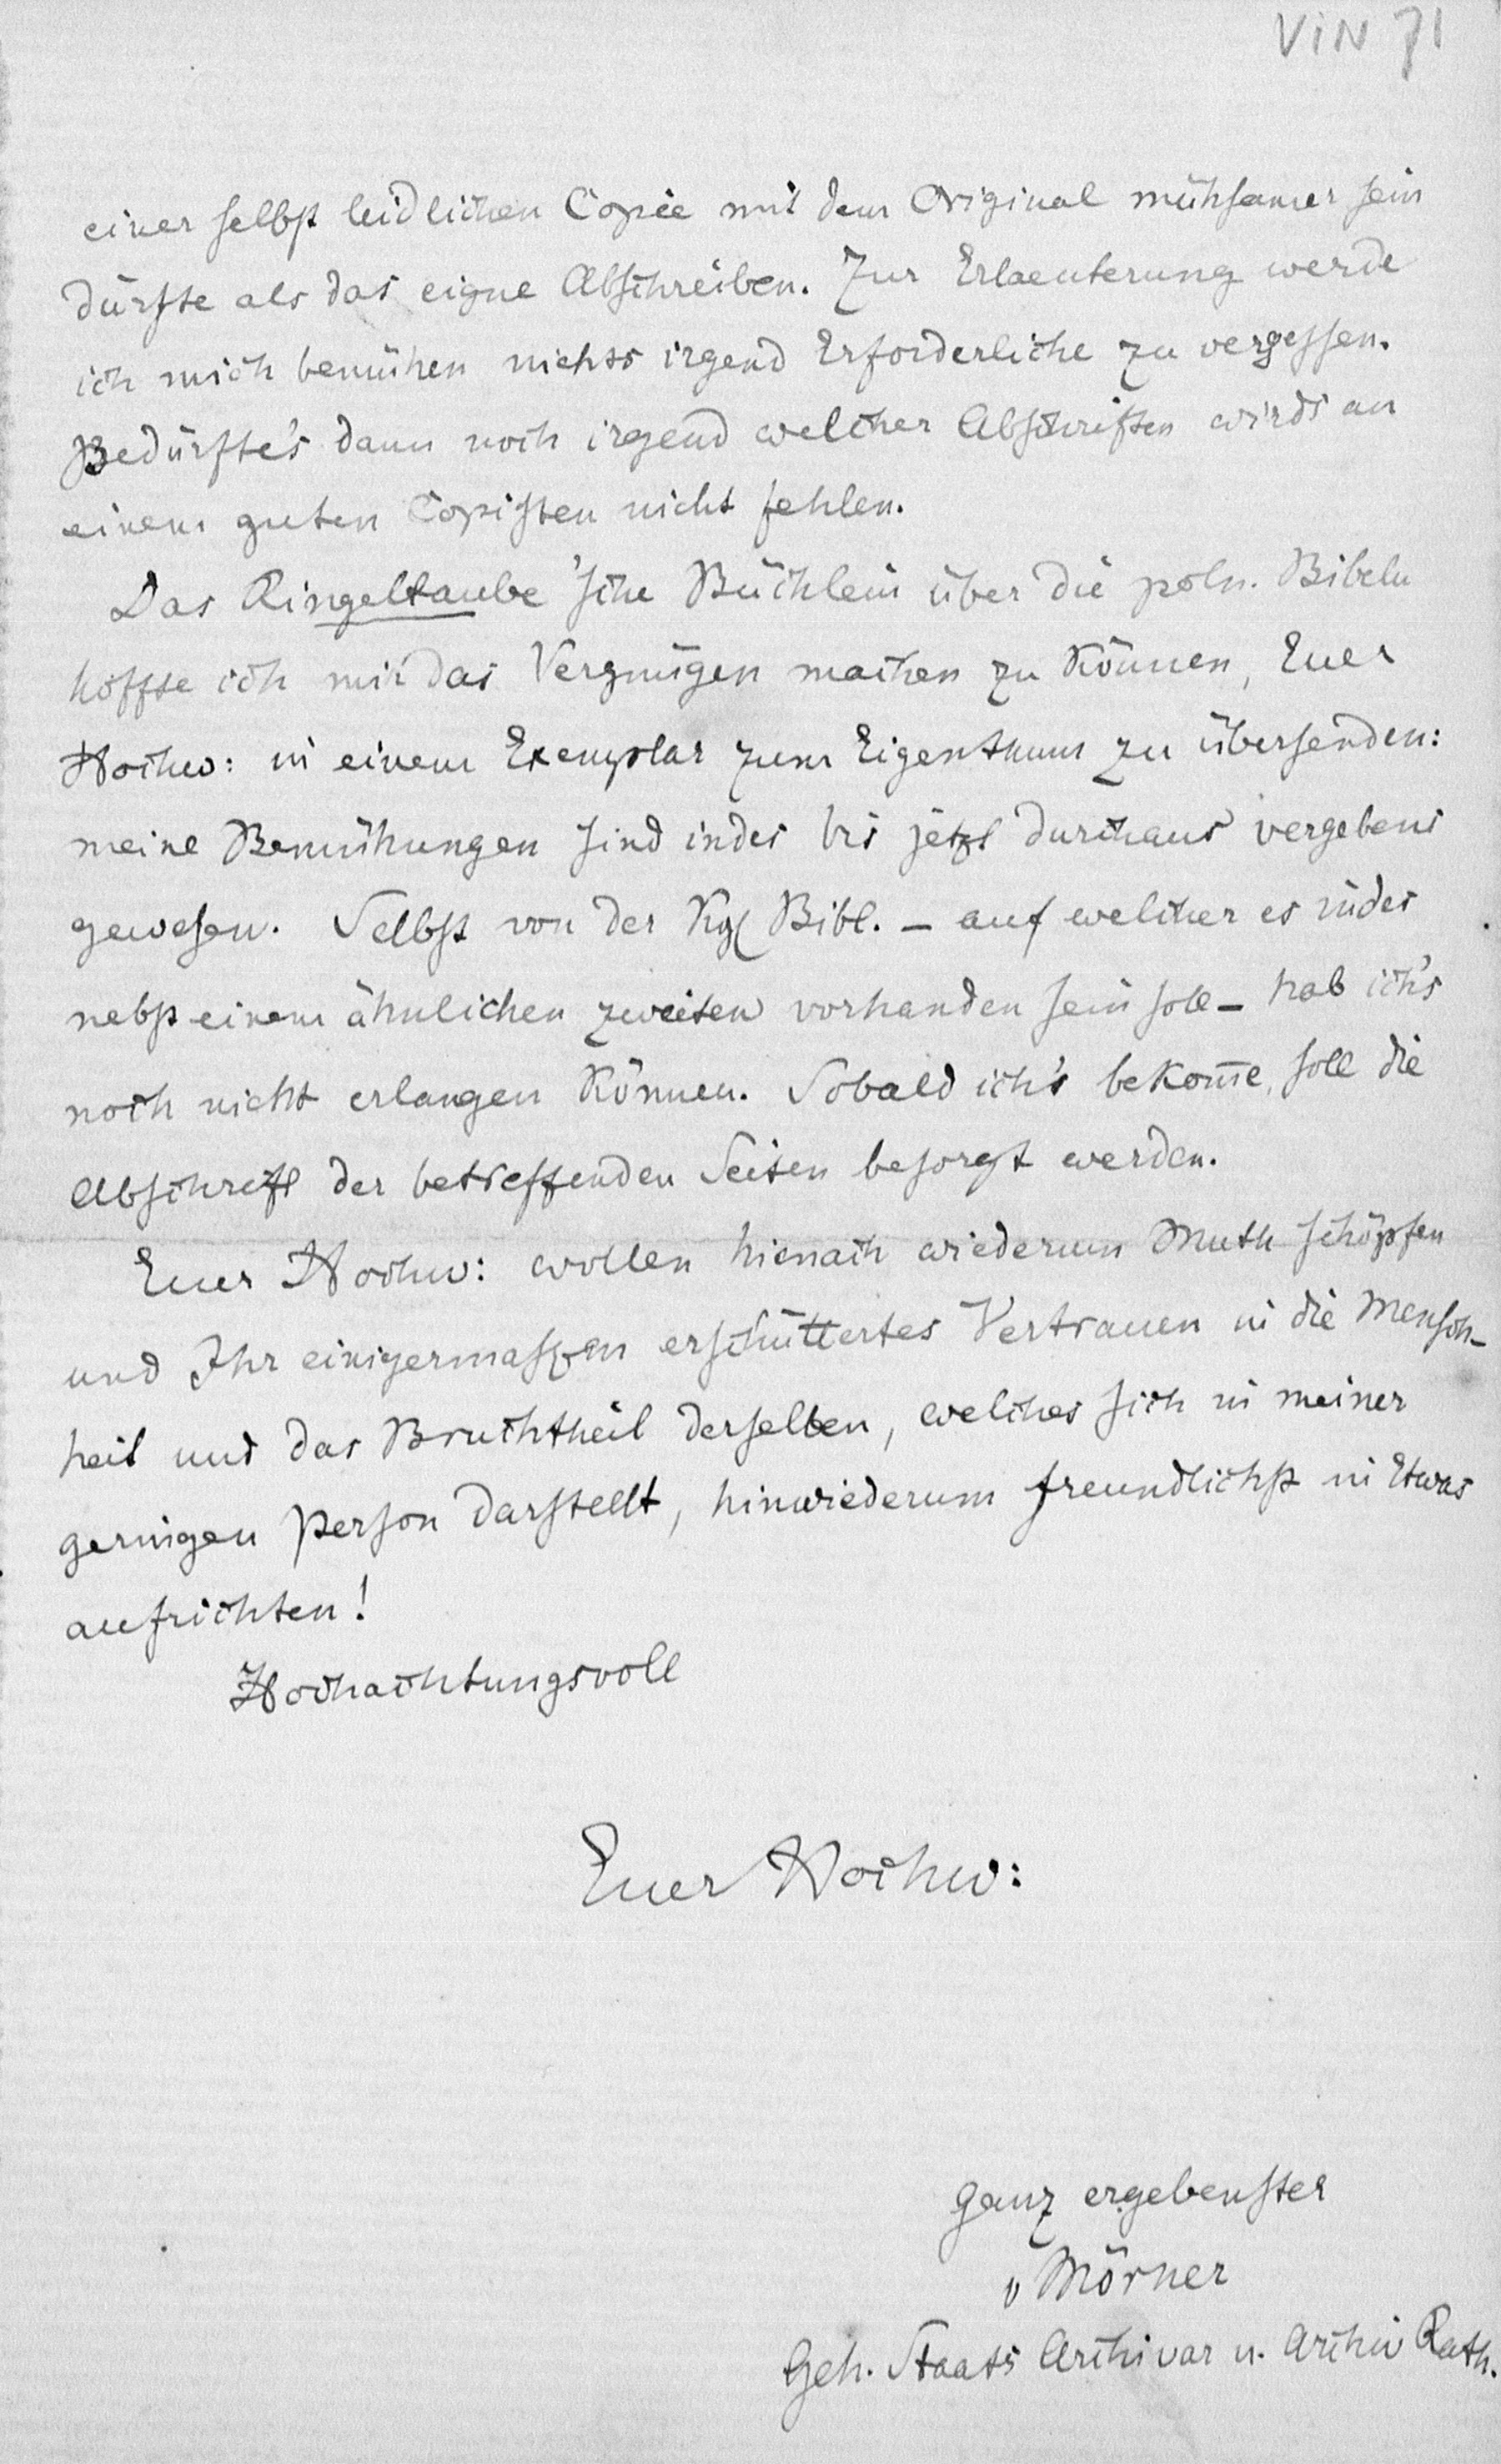 VIN 71
einer selbst leidlichen Copie mit dem Original mühsamer sein
dürfte als das eigne Abschreiben. Zur Erlaeuterung werde
ich mich bemühen nichts irgend Erforderliche zu vergessen.
Bedürfte's dann noch irgend welcher Abschriften wirds an
einem guten Copisten nicht fehlen.
Das Ringeltaube'sche Büchlein über die poln. Bibeln
hoffte ich mir das Vergnügen machen zu können, Euer
Hochw: in einem Exemplar zum Eigenthum zu übersenden:
meine Bemühungen sind indes bis jetzt durchaus vergebens
gewesen. Selbst von der Kgl Bibl. – auf welcher es indes
nebst einem ähnlichen zweiten vorhanden sein soll – hab ich's
noch nicht erlangen können. Sobald ich's bekom̅e, soll die
Abschrift der betreffenden Seiten besorgt werden.
Euer Hochw: wollen hienach wiederum Muth schöpfen
und Ihr einigermaszen erschüttertes Vertrauen in die Mensch-
heit und das Bruchtheil derselben, welches sich in meiner
geringen Person darstellt, hinwiederum freundlichst in Etwas
aufrichten!
Hochachtungsvoll
Euer Hochw:
ganz ergebenster
v Mörner
Geh. Staats Archivar u. Archiv Rath.